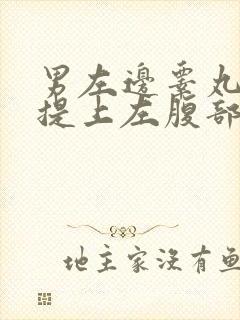 男左邊睪丸
提上左腹部
地主家沒有魚